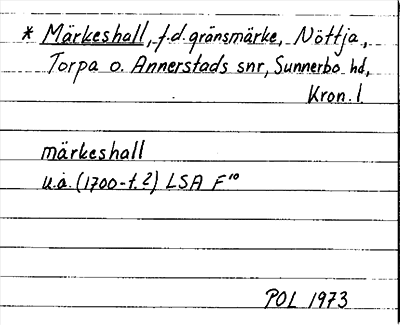 * Märkeshall, f.d. gränsmärke, Nöttja,
Torpa o. Annerstads snr, Sunnerbo hd,
Kron. l.
märkeshall
u.å. (1700-t.?) LSA F¹⁰
POL 1973